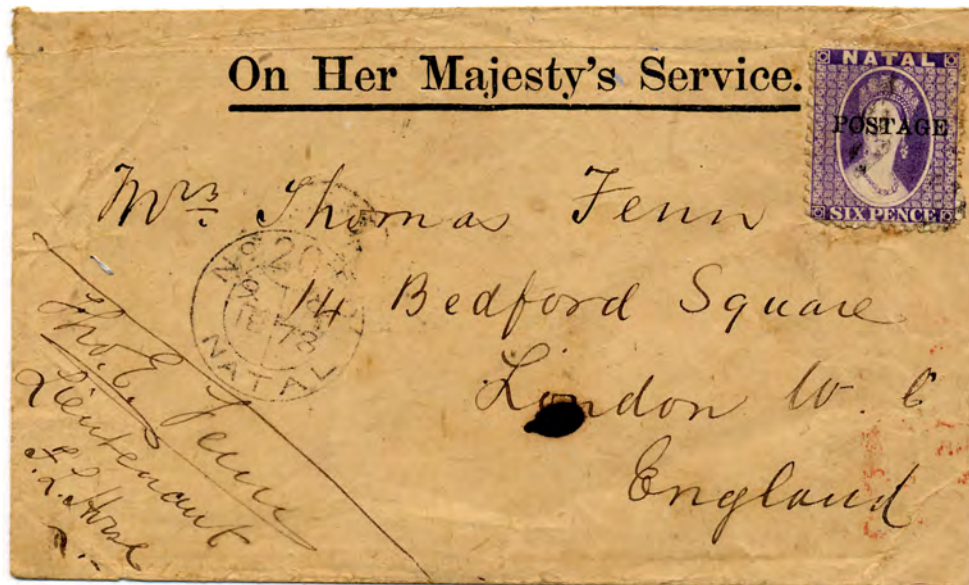 On Her Majesty's Service.
NATAL
POSTAGE
SIX PENCE
Mrs Thomas Fenn
14 Bedford Square
London W. C
England
No. 20
78
NATAL
Tho. E. Fenn
Lieutenant
F. L. Horse